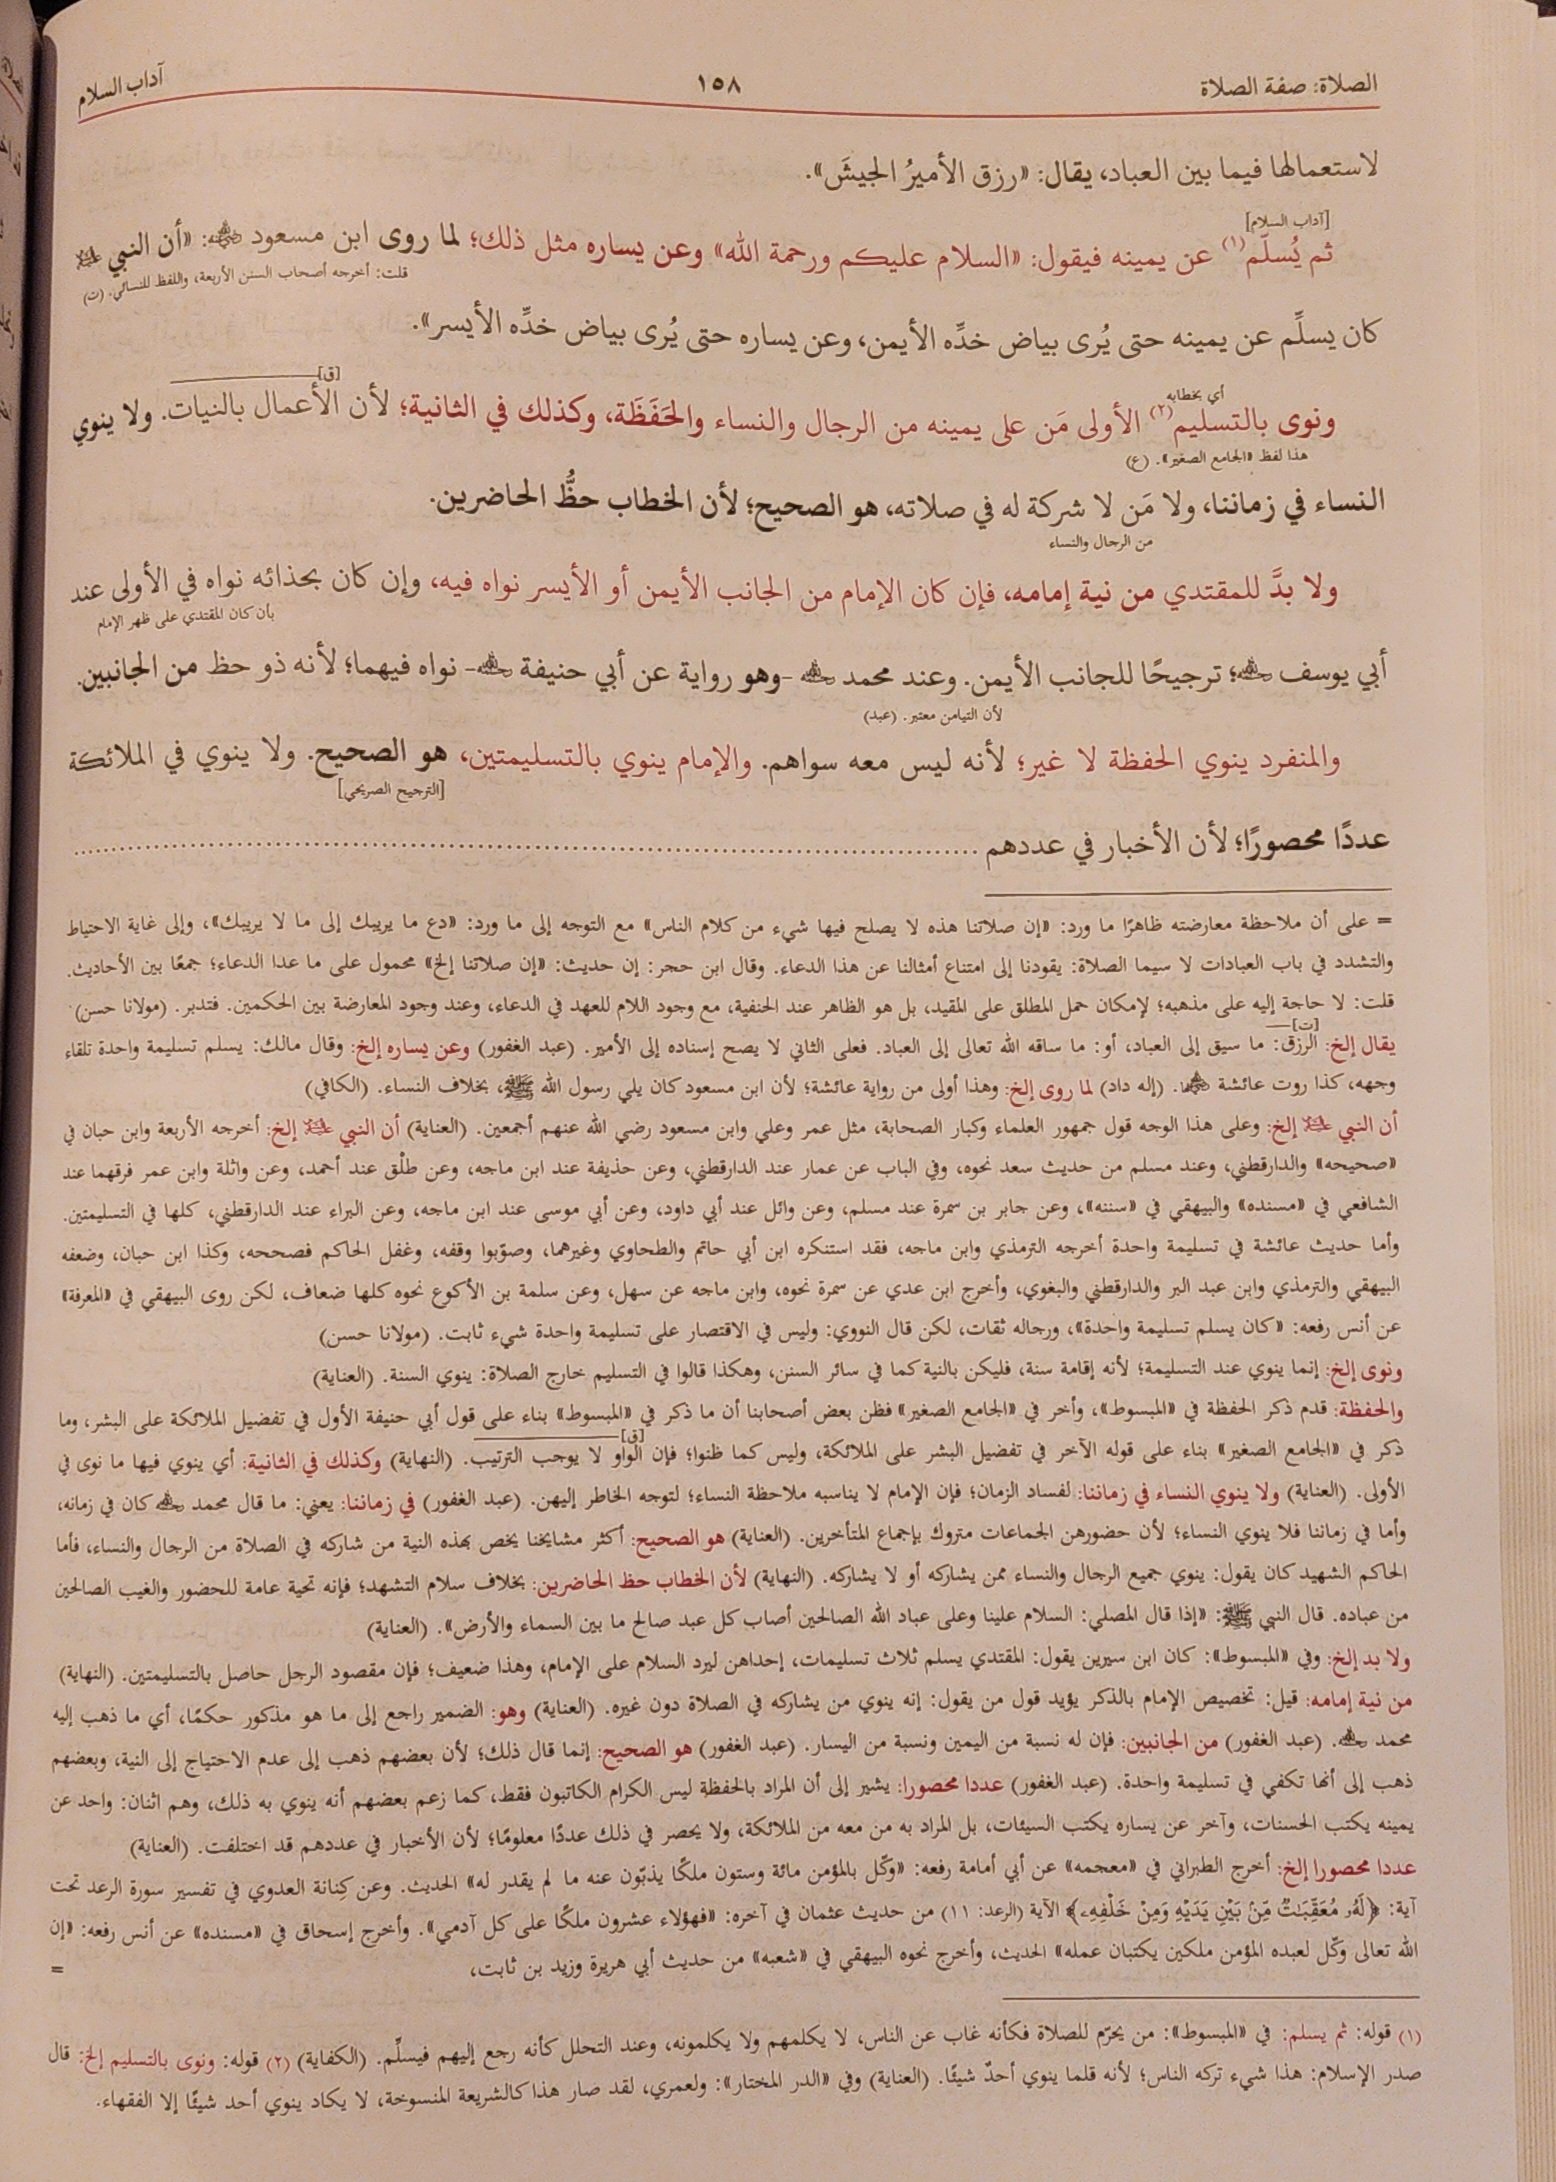 الصلاة: صفة الصلاة
١٥٨
آداب السلام
لاستعمالها فيما بين العباد، يقال: «رزق الأميرُ الجيشَ».
[آداب السلام]
ثم يُسلّم(١) عن يمينه فيقول: «السلام عليكم ورحمة الله» وعن يساره مثل ذلك؛ لما روى ابن مسعود رضي الله عنه: «أن النبي عليه السلام
قلت: أخرجه أصحاب السنن الأربعة، واللفظ للنسائي. (ت)
كان يسلِّم عن يمينه حتى يُرى بياض خدِّه الأيمن، وعن يساره حتى يُرى بياض خدِّه الأيسر».
[ق]
أي بخطابه
ونوى بالتسليم(٢) الأولى مَن على يمينه من الرجال والنساء والحَفَظَة، وكذلك في الثانية؛ لأن الأعمال بالنيات. ولا ينوي
هذا لفظ «الجامع الصغير». (ع)
النساء في زماننا، ولا مَن لا شركة له في صلاته، هو الصحيح؛ لأن الخطاب حظُّ الحاضرين.
من الرجال والنساء
ولا بدَّ للمقتدي من نية إمامه، فإن كان الإمام من الجانب الأيمن أو الأيسر نواه فيه، وإن كان بحذائه نواه في الأولى عند
بأن كان المقتدي على ظهر الإمام
أبي يوسف رحمه الله؛ ترجيحًا للجانب الأيمن. وعند محمد رحمه الله -وهو رواية عن أبي حنيفة رحمه الله- نواه فيهما؛ لأنه ذو حظ من الجانبين.
لأن التيامن معتبر. (عبد)
والمنفرد ينوي الحفظة لا غير؛ لأنه ليس معه سواهم. والإمام ينوي بالتسليمتين، هو الصحيح. ولا ينوي في الملائكة
[الترجيح الصريحي]
عددًا محصورًا؛ لأن الأخبار في عددهم ........................................
= على أن ملاحظة معارضته ظاهرًا ما ورد: «إن صلاتنا هذه لا يصلح فيها شيء من كلام الناس» مع التوجه إلى ما ورد: «دع ما يريبك إلى ما لا يريبك»، وإلى غاية الاحتياط
والتشدد في باب العبادات لا سيما الصلاة: يقودنا إلى امتناع أمثالنا عن هذا الدعاء. وقال ابن حجر: إن حديث: «إن صلاتنا إلخ» محمول على ما عدا الدعاء؛ جمعًا بين الأحاديث.
قلت: لا حاجة إليه على مذهبه؛ لإمكان حمل المطلق على المقيد، بل هو الظاهر عند الحنفية، مع وجود اللام للعهد في الدعاء، وعند وجود المعارضة بين الحكمين. فتدبر. (مولانا حسن)
[ت]
يقال إلخ: الرزق: ما سيق إلى العباد، أو: ما ساقه الله تعالى إلى العباد. فعلى الثاني لا يصح إسناده إلى الأمير. (عبد الغفور) وعن يساره إلخ: وقال مالك: يسلم تسليمة واحدة تلقاء
وجهه، كذا روت عائشة رضي الله عنها. (إله داد) لما روى إلخ: وهذا أولى من رواية عائشة؛ لأن ابن مسعود كان يلي رسول الله ﷺ، بخلاف النساء. (الكافي)
أن النبي عليه السلام إلخ: وعلى هذا الوجه قول جمهور العلماء وكبار الصحابة، مثل عمر وعلي وابن مسعود رضي الله عنهم أجمعين. (العناية) أن النبي عليه السلام إلخ: أخرجه الأربعة وابن حبان في
«صحيحه» والدارقطني، وعند مسلم من حديث سعد نحوه، وفي الباب عن عمار عند الدارقطني، وعن حذيفة عند ابن ماجه، وعن طلْق عند أحمد، وعن واثلة وابن عمر فرقهما عند
الشافعي في «مسنده» والبيهقي في «سننه»، وعن جابر بن سمرة عند مسلم، وعن وائل عند أبي داود، وعن أبي موسى عند ابن ماجه، وعن البراء عند الدارقطني، كلها في التسليمتين.
وأما حديث عائشة في تسليمة واحدة أخرجه الترمذي وابن ماجه، فقد استنكره ابن أبي حاتم والطحاوي وغيرهما، وصوّبوا وقفه، وغفل الحاكم فصححه، وكذا ابن حبان، وضعفه
البيهقي والترمذي وابن عبد البر والدارقطني والبغوي، وأخرج ابن عدي عن سمرة نحوه، وابن ماجه عن سهل، وعن سلمة بن الأكوع نحوه كلها ضعاف، لكن روى البيهقي في «المعرفة»
عن أنس رفعه: «كان يسلم تسليمة واحدة»، ورجاله ثقات، لكن قال النووي: وليس في الاقتصار على تسليمة واحدة شيء ثابت. (مولانا حسن)
ونوى إلخ: إنما ينوي عند التسليمة؛ لأنه إقامة سنة، فليكن بالنية كما في سائر السنن، وهكذا قالوا في التسليم خارج الصلاة: ينوي السنة. (العناية)
والحفظة: قدم ذكر الحفظة في «المبسوط»، وأخر في «الجامع الصغير» فظن بعض أصحابنا أن ما ذكر في «المبسوط» بناء على قول أبي حنيفة الأول في تفضيل الملائكة على البشر، وما
[ق]
ذكر في «الجامع الصغير» بناء على قوله الآخر في تفضيل البشر على الملائكة، وليس كما ظنوا؛ فإن الواو لا يوجب الترتيب. (النهاية) وكذلك في الثانية: أي ينوي فيها ما نوى في
الأولى. (العناية) ولا ينوي النساء في زماننا: لفساد الزمان؛ فإن الإمام لا يناسبه ملاحظة النساء؛ لتوجه الخاطر إليهن. (عبد الغفور) في زماننا: يعني: ما قال محمد رحمه الله كان في زمانه،
وأما في زماننا فلا ينوي النساء؛ لأن حضورهن الجماعات متروك بإجماع المتأخرين. (العناية) هو الصحيح: أكثر مشايخنا يخص بهذه النية من شاركه في الصلاة من الرجال والنساء، فأما
الحاكم الشهيد كان يقول: ينوي جميع الرجال والنساء ممن يشاركه أو لا يشاركه. (النهاية) لأن الخطاب حظ الحاضرين: بخلاف سلام التشهد؛ فإنه تحية عامة للحضور والغيب الصالحين
من عباده. قال النبي ﷺ: «إذا قال المصلي: السلام علينا وعلى عباد الله الصالحين أصاب كل عبد صالح ما بين السماء والأرض». (العناية)
ولا بد إلخ: وفي «المبسوط»: كان ابن سيرين يقول: المقتدي يسلم ثلاث تسليمات، إحداهن ليرد السلام على الإمام، وهذا ضعيف؛ فإن مقصود الرجل حاصل بالتسليمتين. (النهاية)
من نية إمامه: قيل: تخصيص الإمام بالذكر يؤيد قول من يقول: إنه ينوي من يشاركه في الصلاة دون غيره. (العناية) وهو: الضمير راجع إلى ما هو مذكور حكمًا، أي ما ذهب إليه
محمد رحمه الله. (عبد الغفور) من الجانبين: فإن له نسبة من اليمين ونسبة من اليسار. (عبد الغفور) هو الصحيح: إنما قال ذلك؛ لأن بعضهم ذهب إلى عدم الاحتياج إلى النية، وبعضهم
ذهب إلى أنها تكفي في تسليمة واحدة. (عبد الغفور) عددا محصورا: يشير إلى أن المراد بالحفظة ليس الكرام الكاتبون فقط، كما زعم بعضهم أنه ينوي به ذلك، وهم اثنان: واحد عن
يمينه يكتب الحسنات، وآخر عن يساره يكتب السيئات، بل المراد به من معه من الملائكة، ولا يحصر في ذلك عددًا معلومًا؛ لأن الأخبار في عددهم قد اختلفت. (العناية)
عددا محصورا إلخ: أخرج الطبراني في «معجمه» عن أبي أمامة رفعه: «وكّل بالمؤمن مائة وستون ملكًا يذبّون عنه ما لم يقدر له» الحديث. وعن كِنانة العدوي في تفسير سورة الرعد تحت
آية: ﴿لَهُۥ مُعَقِّبَٰتٌ مِّنۢ بَيْنِ يَدَيْهِ وَمِنْ خَلْفِهِۦ﴾ الآية (الرعد: ١١) من حديث عثمان في آخره: «فهؤلاء عشرون ملكًا على كل آدمي». وأخرج إسحاق في «مسنده» عن أنس رفعه: «إن
الله تعالى وكّل لعبده المؤمن ملكين يكتبان عمله» الحديث، وأخرج نحوه البيهقي في «شعبه» من حديث أبي هريرة وزيد بن ثابت، =
(١) قوله: ثم يسلم: في «المبسوط»: من يحرّم للصلاة فكأنه غاب عن الناس، لا يكلمهم ولا يكلمونه، وعند التحلل كأنه رجع إليهم فيسلِّم. (الكفاية) (٢) قوله: ونوى بالتسليم إلخ: قال
صدر الإسلام: هذا شيء تركه الناس؛ لأنه قلما ينوي أحدٌ شيئًا. (العناية) وفي «الدر المختار»: ولعمري، لقد صار هذا كالشريعة المنسوخة، لا يكاد ينوي أحد شيئًا إلا الفقهاء.